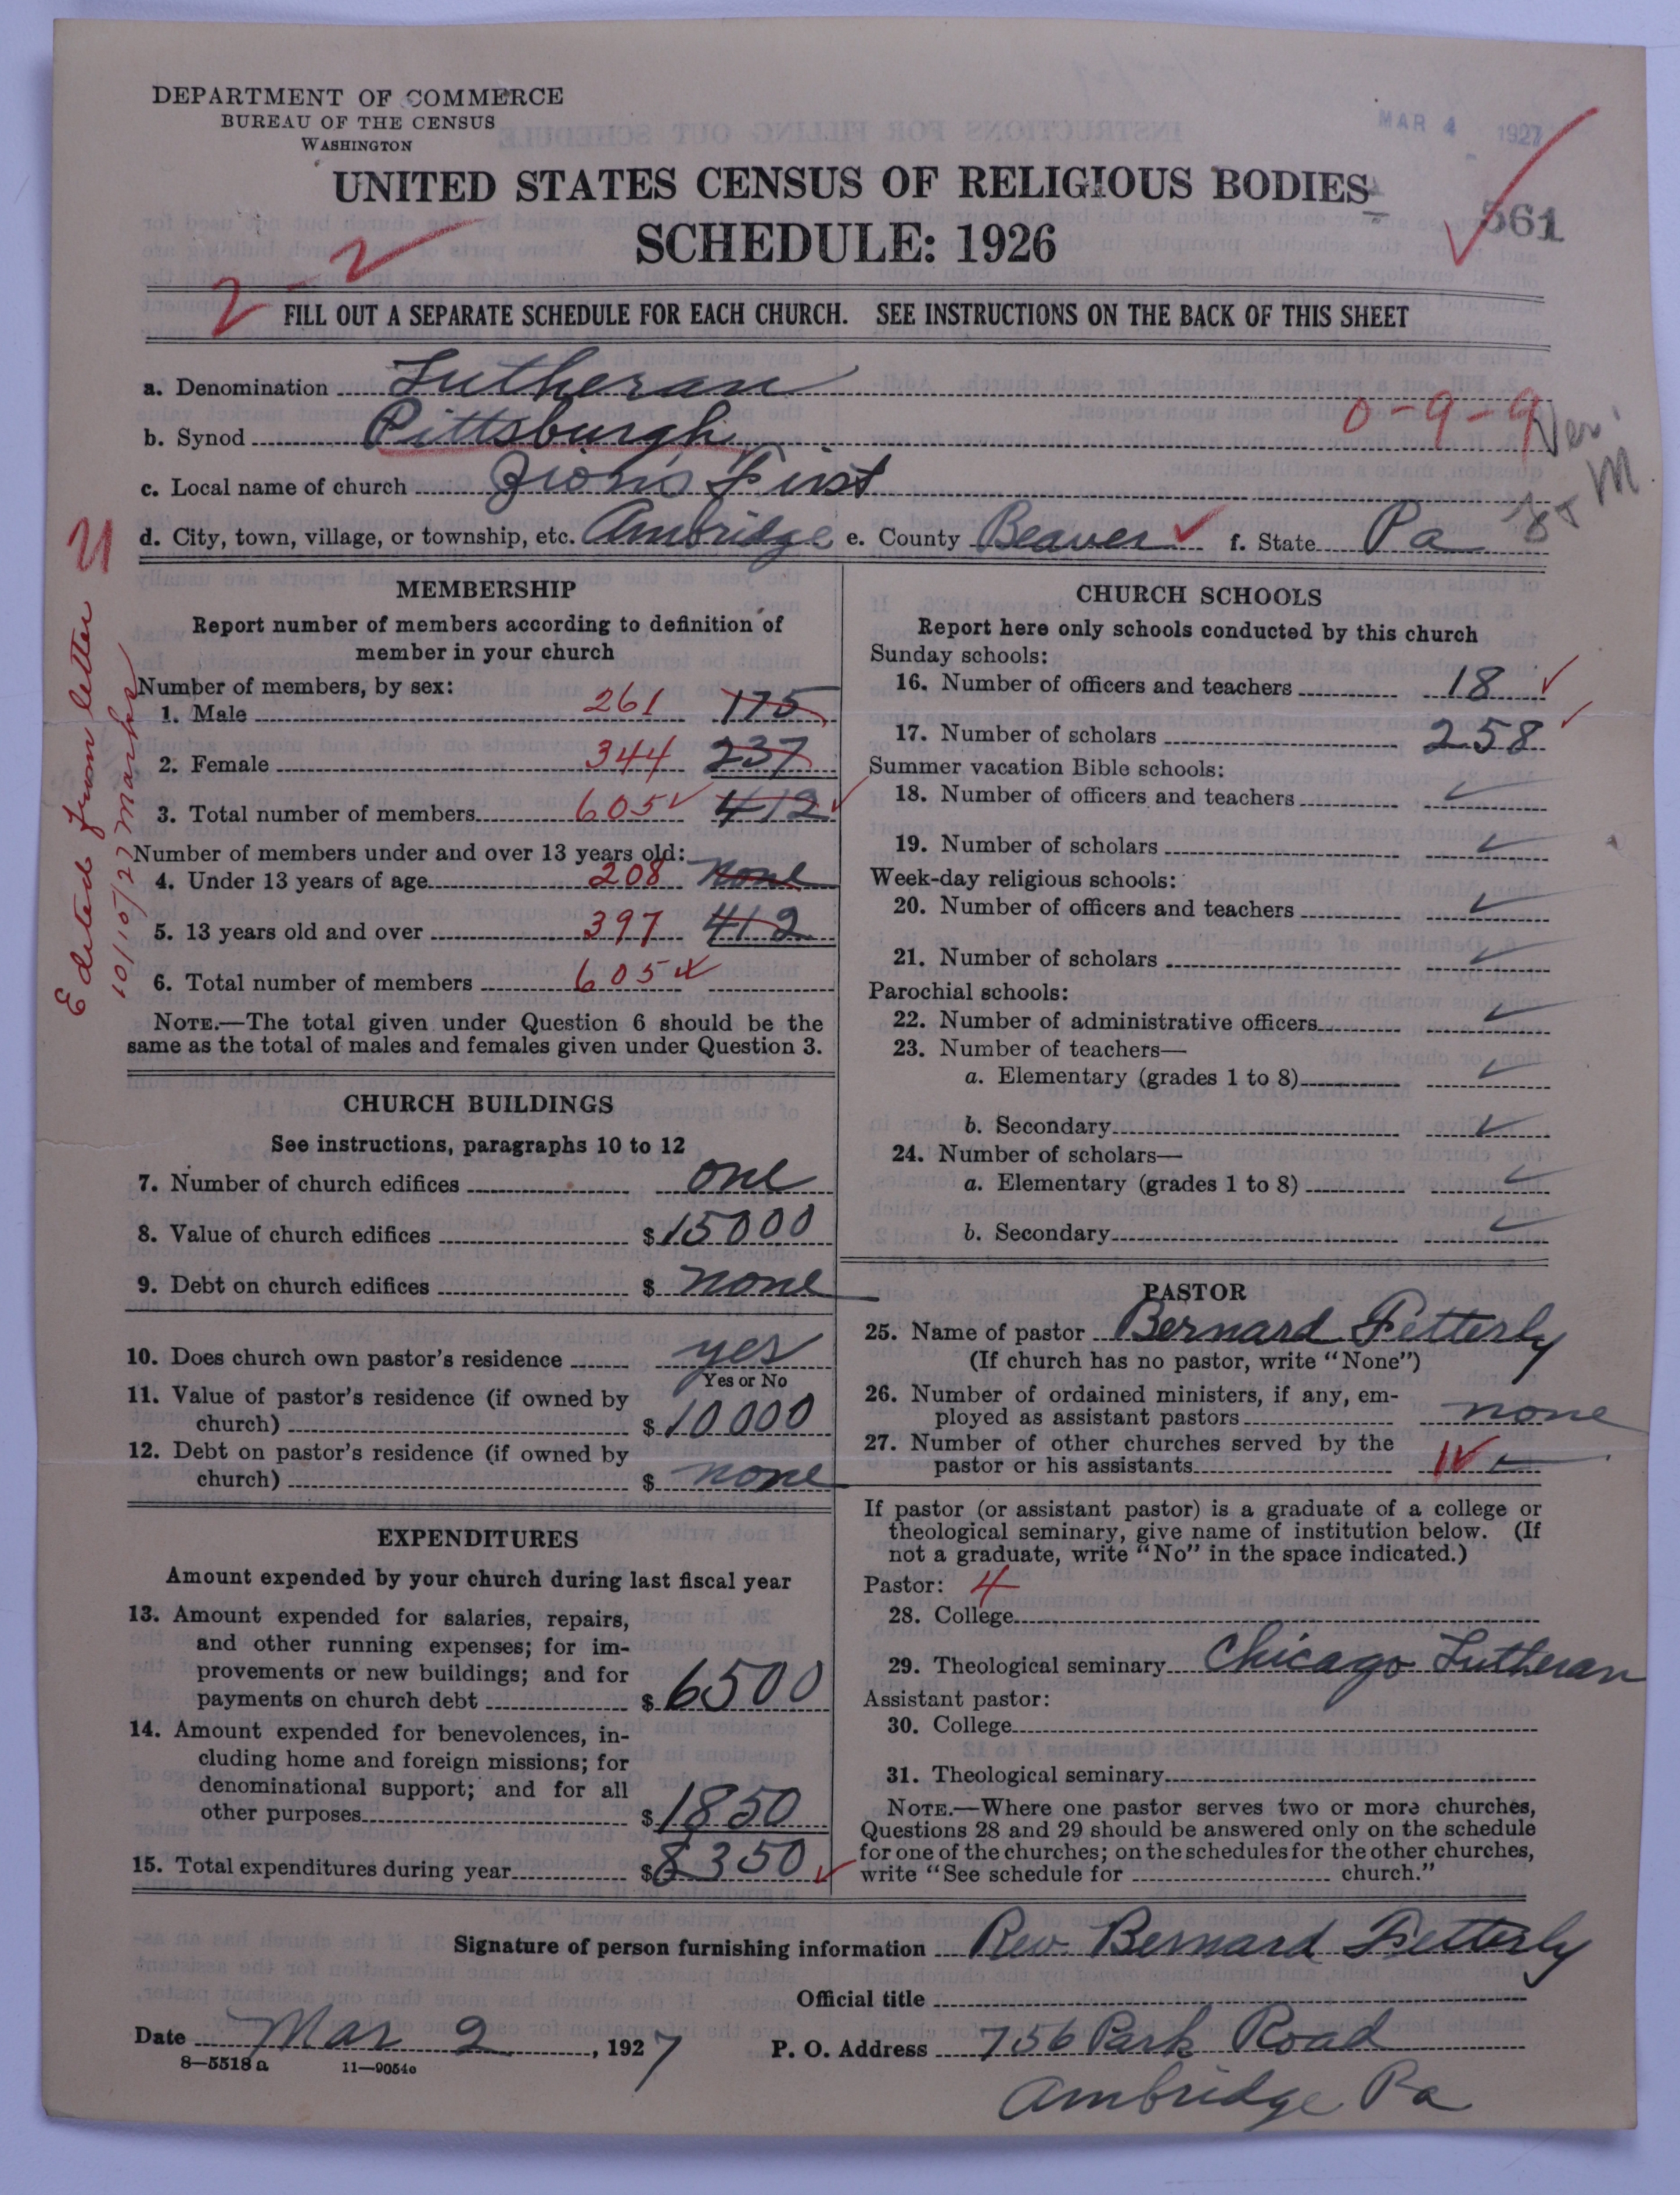 DEPARTMENT OF COMMERCE
BUREAU OF THE CENSUS
WASHINGTON
MAR 4 1927
UNITED STATES CENSUS OF RELIGIOUS BODIES
561
SCHEDULE: 1926
2-2
FILL OUT A SEPARATE SCHEDULE FOR EACH CHURCH. SEE INSTRUCTIONS ON THE BACK OF THIS SHEET
a. Denomination Lutheran
0-9-9
b. Synod Pittsburgh
c. Local name of church Zion's First
d. City, town, village, or township, etc. Ambridge e. County Beaver f. State Pa
Edited from letter
10/10/27 Marks
MEMBERSHIP
Report number of members according to definition of
member in your church
Number of members, by sex:
1. Male 261 175
2. Female 344 237
3. Total number of members 605 412
Number of members under and over 13 years old:
4. Under 13 years of age 208 none
5. 13 years old and over 397 412
6. Total number of members 605
NOTE.—The total given under Question 6 should be the
same as the total of males and females given under Question 3.
CHURCH BUILDINGS
See instructions, paragraphs 10 to 12
7. Number of church edifices one
8. Value of church edifices $15000
9. Debt on church edifices $ none
10. Does church own pastor's residence yes
Yes or No
11. Value of pastor's residence (if owned by
church) $10.000
12. Debt on pastor's residence (if owned by
church) $ none
EXPENDITURES
Amount expended by your church during last fiscal year
13. Amount expended for salaries, repairs,
and other running expenses; for im-
provements or new buildings; and for
payments on church debt $6500
14. Amount expended for benevolences, in-
cluding home and foreign missions; for
denominational support; and for all
other purposes $1850
15. Total expenditures during year $8350
CHURCH SCHOOLS
Report here only schools conducted by this church
Sunday schools:
16. Number of officers and teachers 18
17. Number of scholars 258
Summer vacation Bible schools:
18. Number of officers and teachers
19. Number of scholars
Week-day religious schools:
20. Number of officers and teachers
21. Number of scholars
Parochial schools:
22. Number of administrative officers
23. Number of teachers—
a. Elementary (grades 1 to 8)
b. Secondary
24. Number of scholars—
a. Elementary (grades 1 to 8)
b. Secondary
PASTOR
25. Name of pastor Bernard Fetterly
(If church has no pastor, write "None")
26. Number of ordained ministers, if any, em-
ployed as assistant pastors none
27. Number of other churches served by the
pastor or his assistants 1
If pastor (or assistant pastor) is a graduate of a college or
theological seminary, give name of institution below. (If
not a graduate, write "No" in the space indicated.)
Pastor: 4
28. College
29. Theological seminary Chicago Lutheran
Assistant pastor:
30. College
31. Theological seminary
NOTE.—Where one pastor serves two or more churches,
Questions 28 and 29 should be answered only on the schedule
for one of the churches; on the schedules for the other churches,
write "See schedule for church."
Signature of person furnishing information Rev. Bernard Fetterly
Official title
Date Mar 2, 1927 P. O. Address 756 Park Road
8—5518a 11—9054c
Ambridge Pa